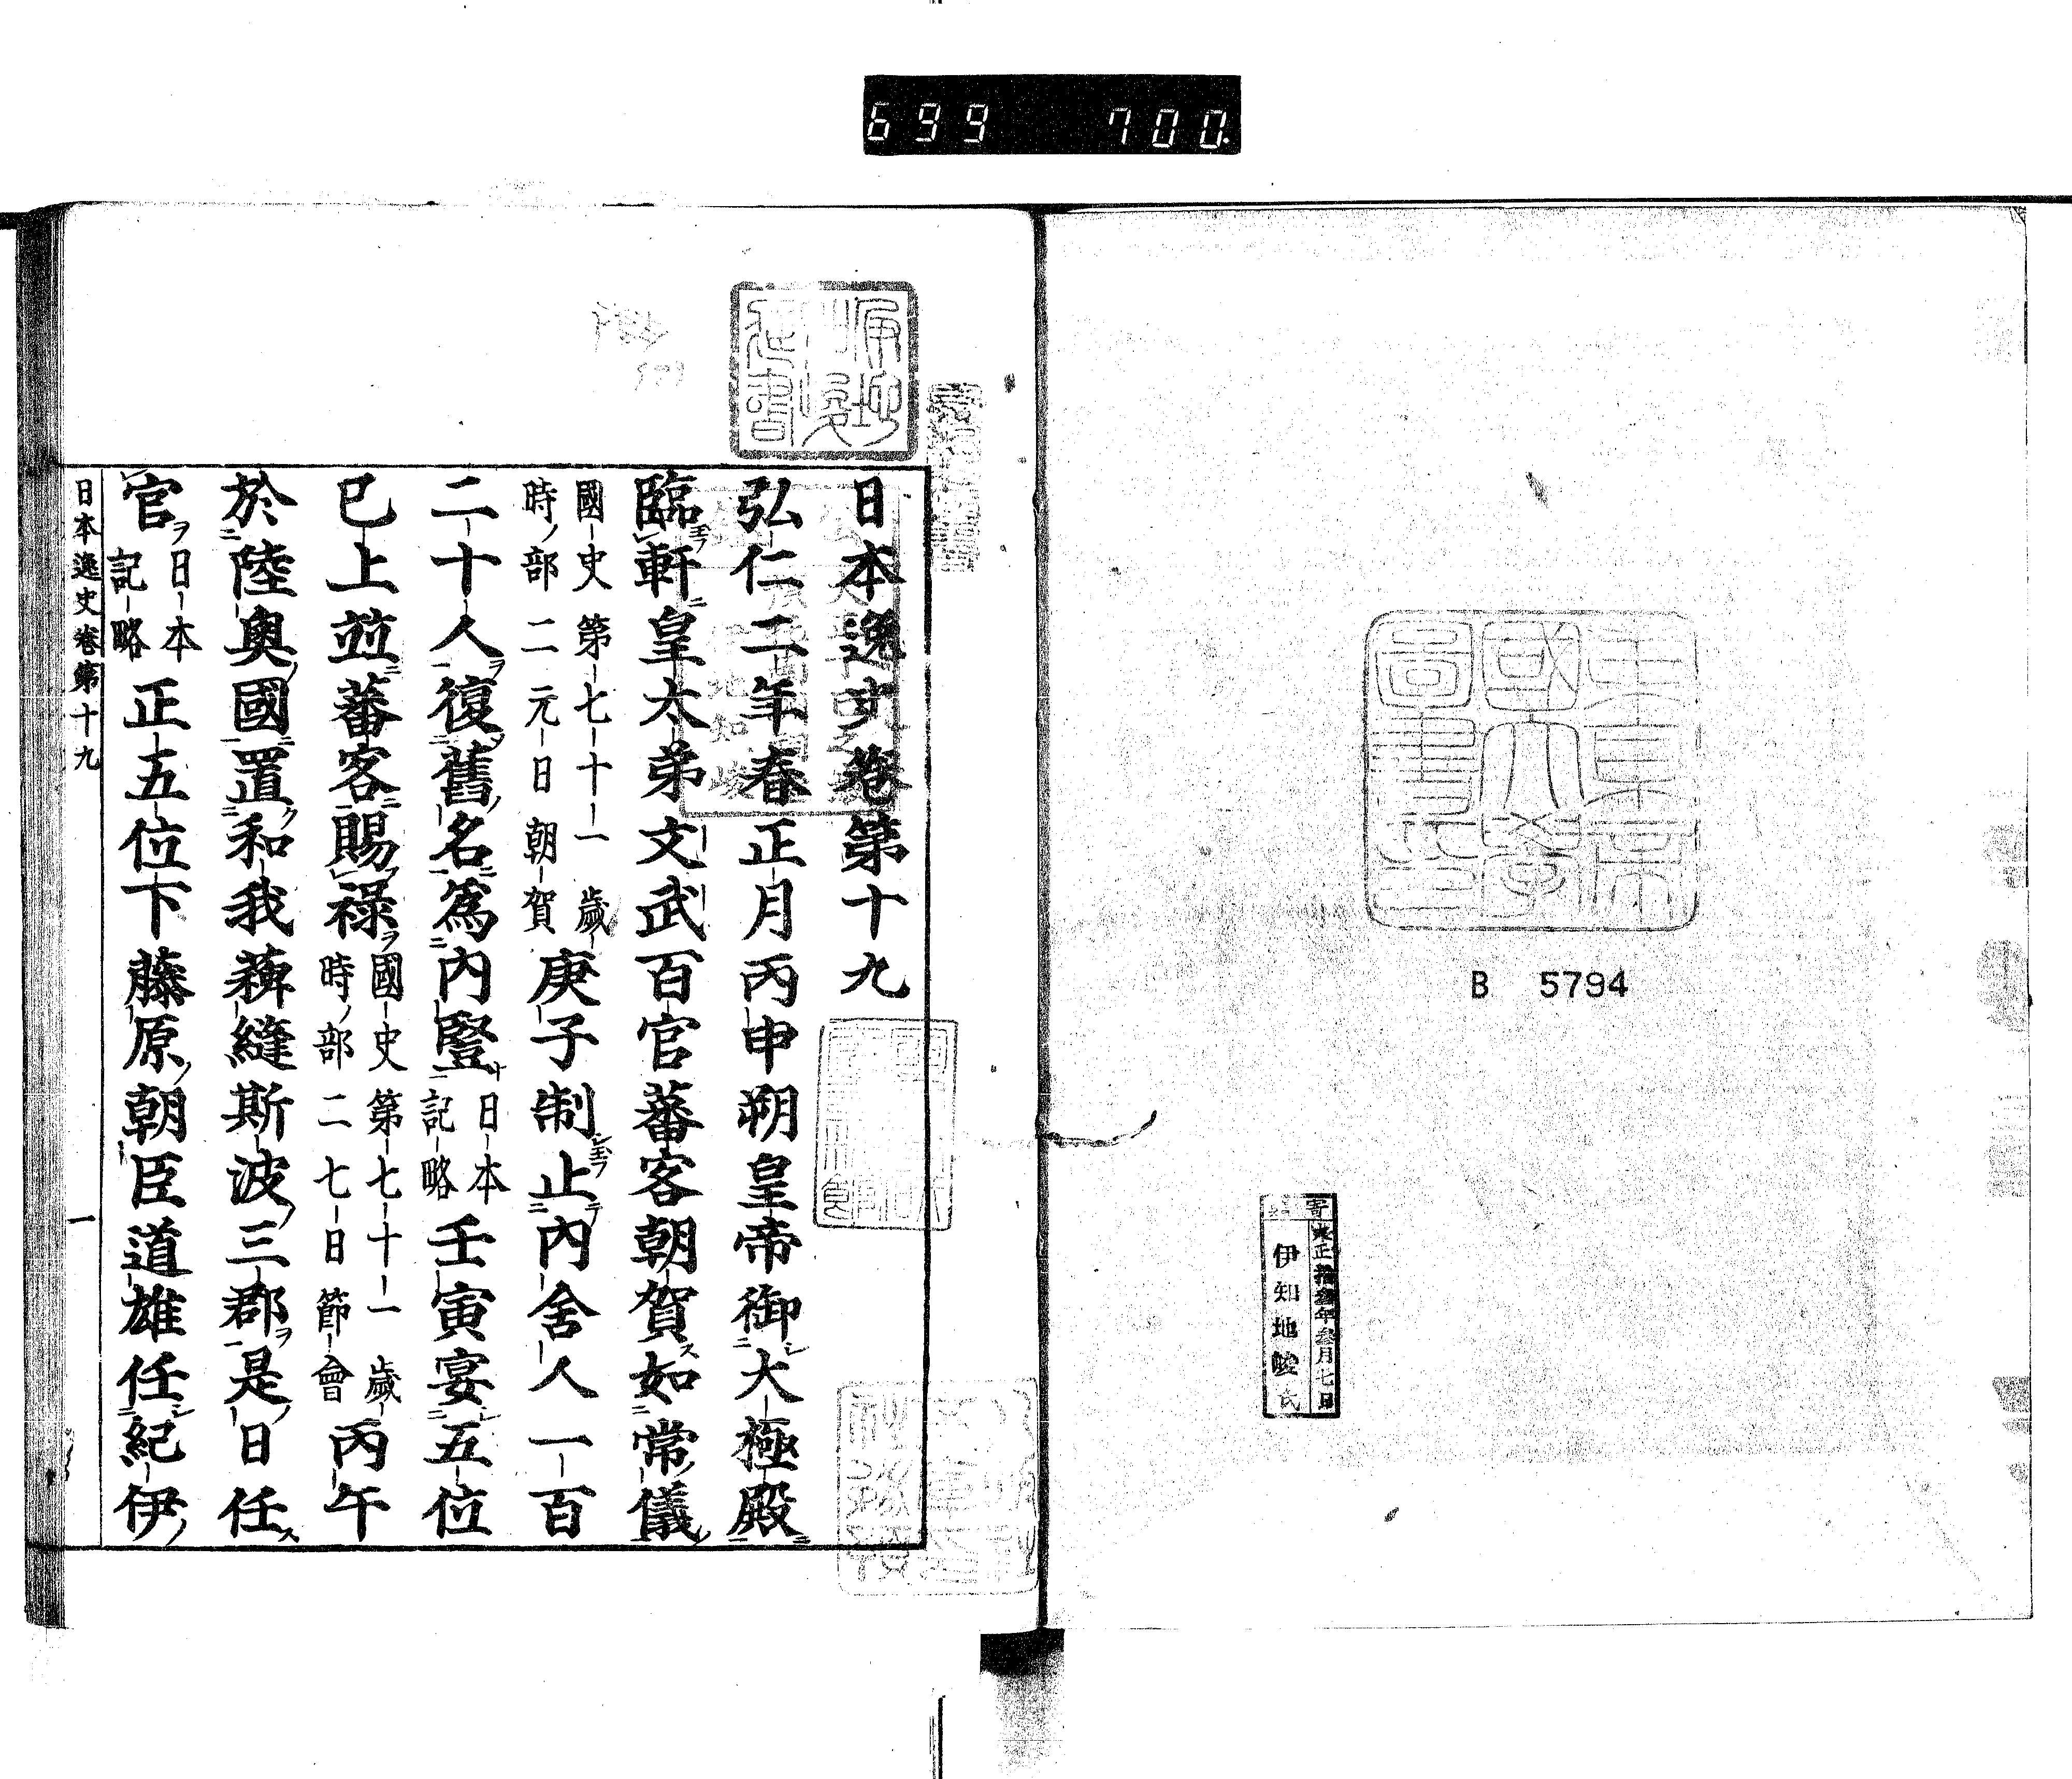 699 700
東京帝國大學圖書印
B 5794
寄
大正拾參年參月七日
伊知地峻氏
日本逸史卷第十九
弘仁二年春正月丙申朔皇帝御大極殿
臨軒皇太弟文武百官蕃客朝賀如常儀
國史第七十一歲
時部二元日朝賀
庚子制止內舍人一百
二十人復舊名爲內豎
日本
記略
壬寅宴五位
已上並蕃客賜祿
國史第七十一歲
時部二七日節會
丙午
於陸奧國置和我薭縫斯波三郡是日任
官
日本
記略
正五位下藤原朝臣道雄任紀伊
日本逸史卷第十九 一